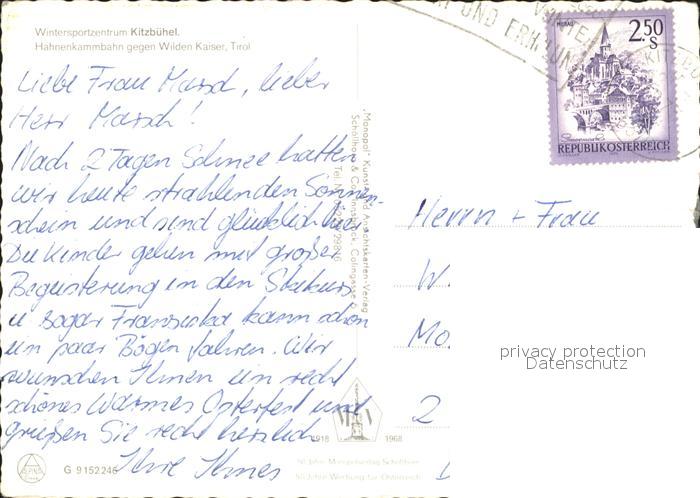 Wintersportzentrum Kitzbühel.
Hahnenkammbahn gegen Wilden Kaiser, Tirol
Liebe Frau Marsch, lieber
Herr Marsch!
Nach 2 Tagen Schnee hatten
wir heute strahlenden Sonnen-
schein und sind glücklich hier.
Die Kinder gehen mit großer
Begeisterung in den Skikurs
u sogar Franziska kann schon
ein paar Bögen fahren. Wir
wünschen Ihnen ein recht
schönes warmes Osterfest und
grüßen Sie recht herzlich
Ihre
G 9152246
"Monopol"- Kunst- und Ansichtskarten-Verlag
Schöllhorn & Co., Innsbruck, Colingasse
1918 1968
50 Jahre Werbung für Österreich
UND
MURAU
2.50
S
REPUBLIK ÖSTERREICH
Herrn + Frau
W.
Mo.
2
privacy protection
Datenschutz